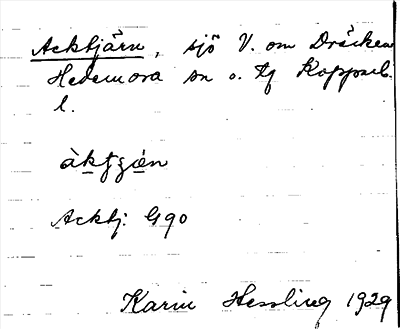 Acktjärn, sjö V. om Dräcken
Hedemora sn o. tg Kopparb.
l.
Acktj. G 90
Karin Hessling 1929